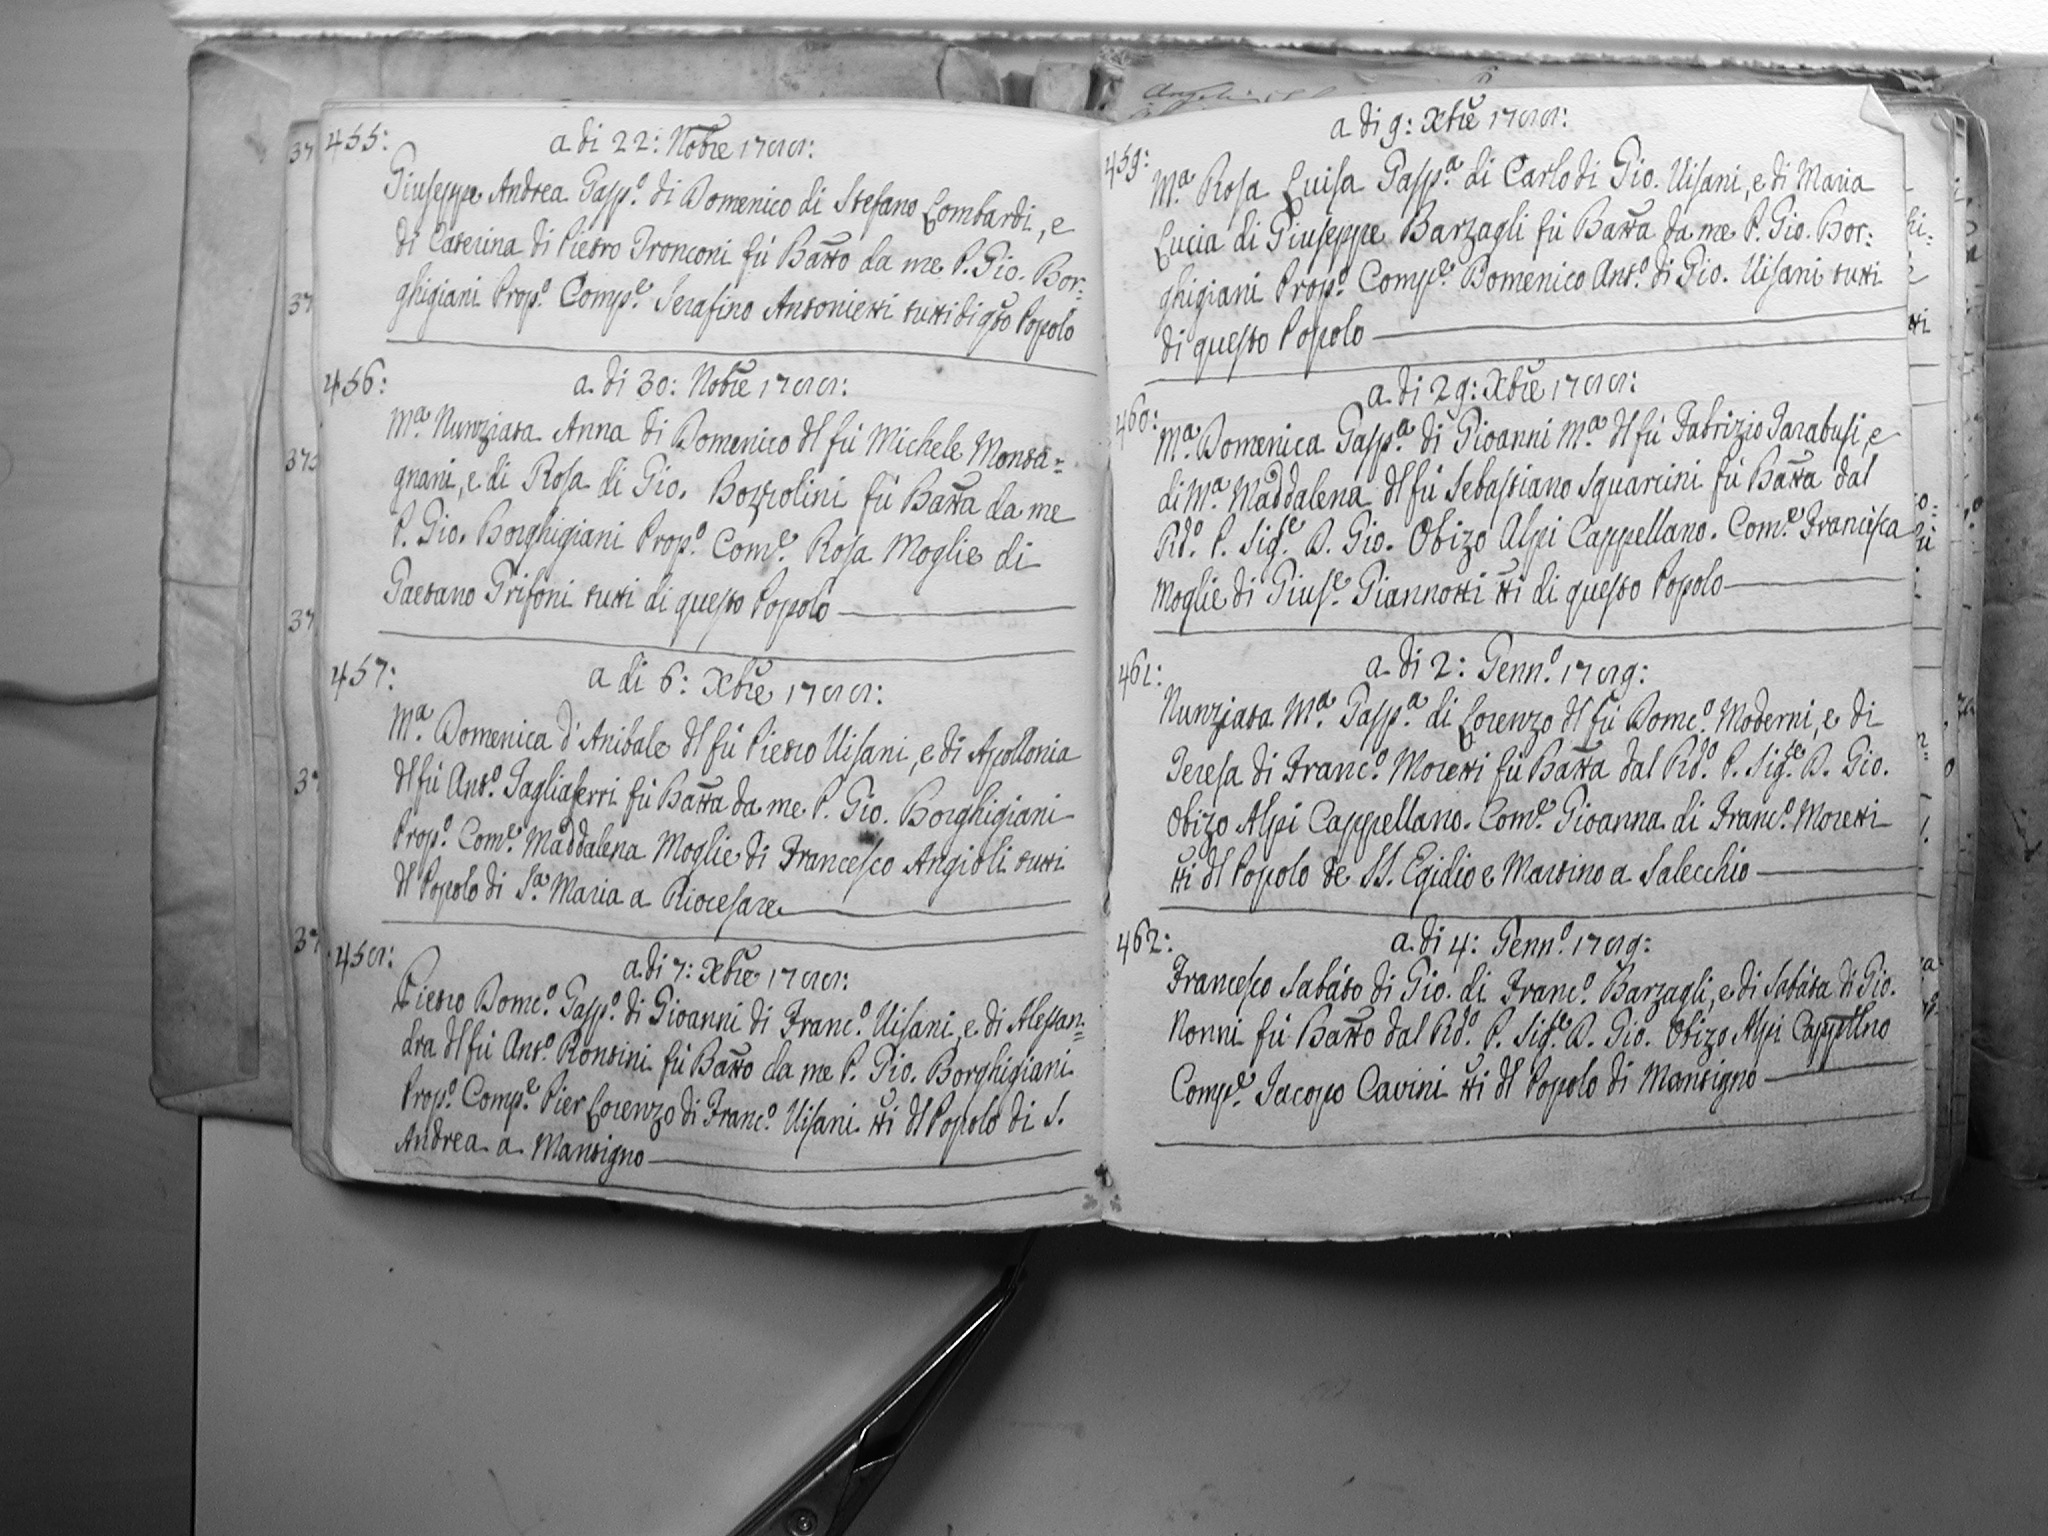 455:
a di 22: Nobre 1788:
Giuseppe Andrea Gasp.º di Domenico di Stefano Lombardi, e
di Caterina di Pietro Tronconi fù Batto da me P. Gio. Bor:
ghigiani Prop.º Comp.e Serafino Antonietti tutti di qsto Popolo
456:
a di 30: Nobre 1788:
M.a Nunziata Anna di Domenico dl fù Michele Monta=
gnani, e di Rosa di Gio. Bozzolini fù Batta da me
P. Gio. Borghigiani Prop.º Com.e Rosa Moglie di
Gaetano Grifoni tutti di questo Popolo
457:
a di 6: Xbre 1788:
M.a Domenica d'Anibale dl fù Pietro Visani, e di Apollonia
dl fù Ant.º Tagliaferri fù Batta da me P. Gio. Borghigiani
Prop.º Com.e Maddalena Moglie di Francesco Angioli tutti
dl Popolo di S.a Maria a Riocesare
458:
a di 7: Xbre 1788:
Pietro Dom.co Gasp.º di Gioanni di Franc.º Visani, e di Alessan=
dra dl fù Ant.º Rontini fù Batto da me P. Gio. Borghigiani
Prop.º Comp.e Pier Lorenzo di Franc.º Visani tti dl Popolo di S.
Andrea a Mantigno
459:
a di 9: Xbre 1788:
M.a Rosa Luisa Gasp.a di Carlo di Gio. Visani, e di Maria
Lucia di Giuseppe Barzagli fù Batta da me P. Gio. Bor:
ghigiani Prop.º Comp.e Domenico Ant.º di Gio. Visani tutti
di questo Popolo
460:
a di 29: Xbre 1788:
M.a Domenica Gasp.a di Gioanni M.a dl fù Fabrizio Tarabusi, e
di M.a Maddalena dl fù Sebastiano Squarcini fù Batta dal
Rd.º P. Sig.e D. Gio. Obizo Alpi Cappellano. Com.e Francesca
Moglie di Gius.e Giannotti tti di questo Popolo
461:
a di 2: Genn.º 1789:
Nunziata M.a Gasp.a di Lorenzo dl fù Dom.co Moderni, e di
Teresa di Franc.º Moretti fù Batta dal Rd.º P. Sig.e D. Gio.
Obizo Alpi Cappellano. Com.e Gioanna di Franc.º Moretti
tti dl Popolo de SS. Egidio e Martino a Salecchio
462:
a di 4: Genn.º 1789:
Francesco Sabáto di Gio. di Franc.º Barzagli, e di Sabáta di Gio.
Nonni fù Batto dal Rd.º P. Sig.e D. Gio. Obizo Alpi Cappellno
Comp.e Jacopo Cavini tti dl Popolo di Mantigno